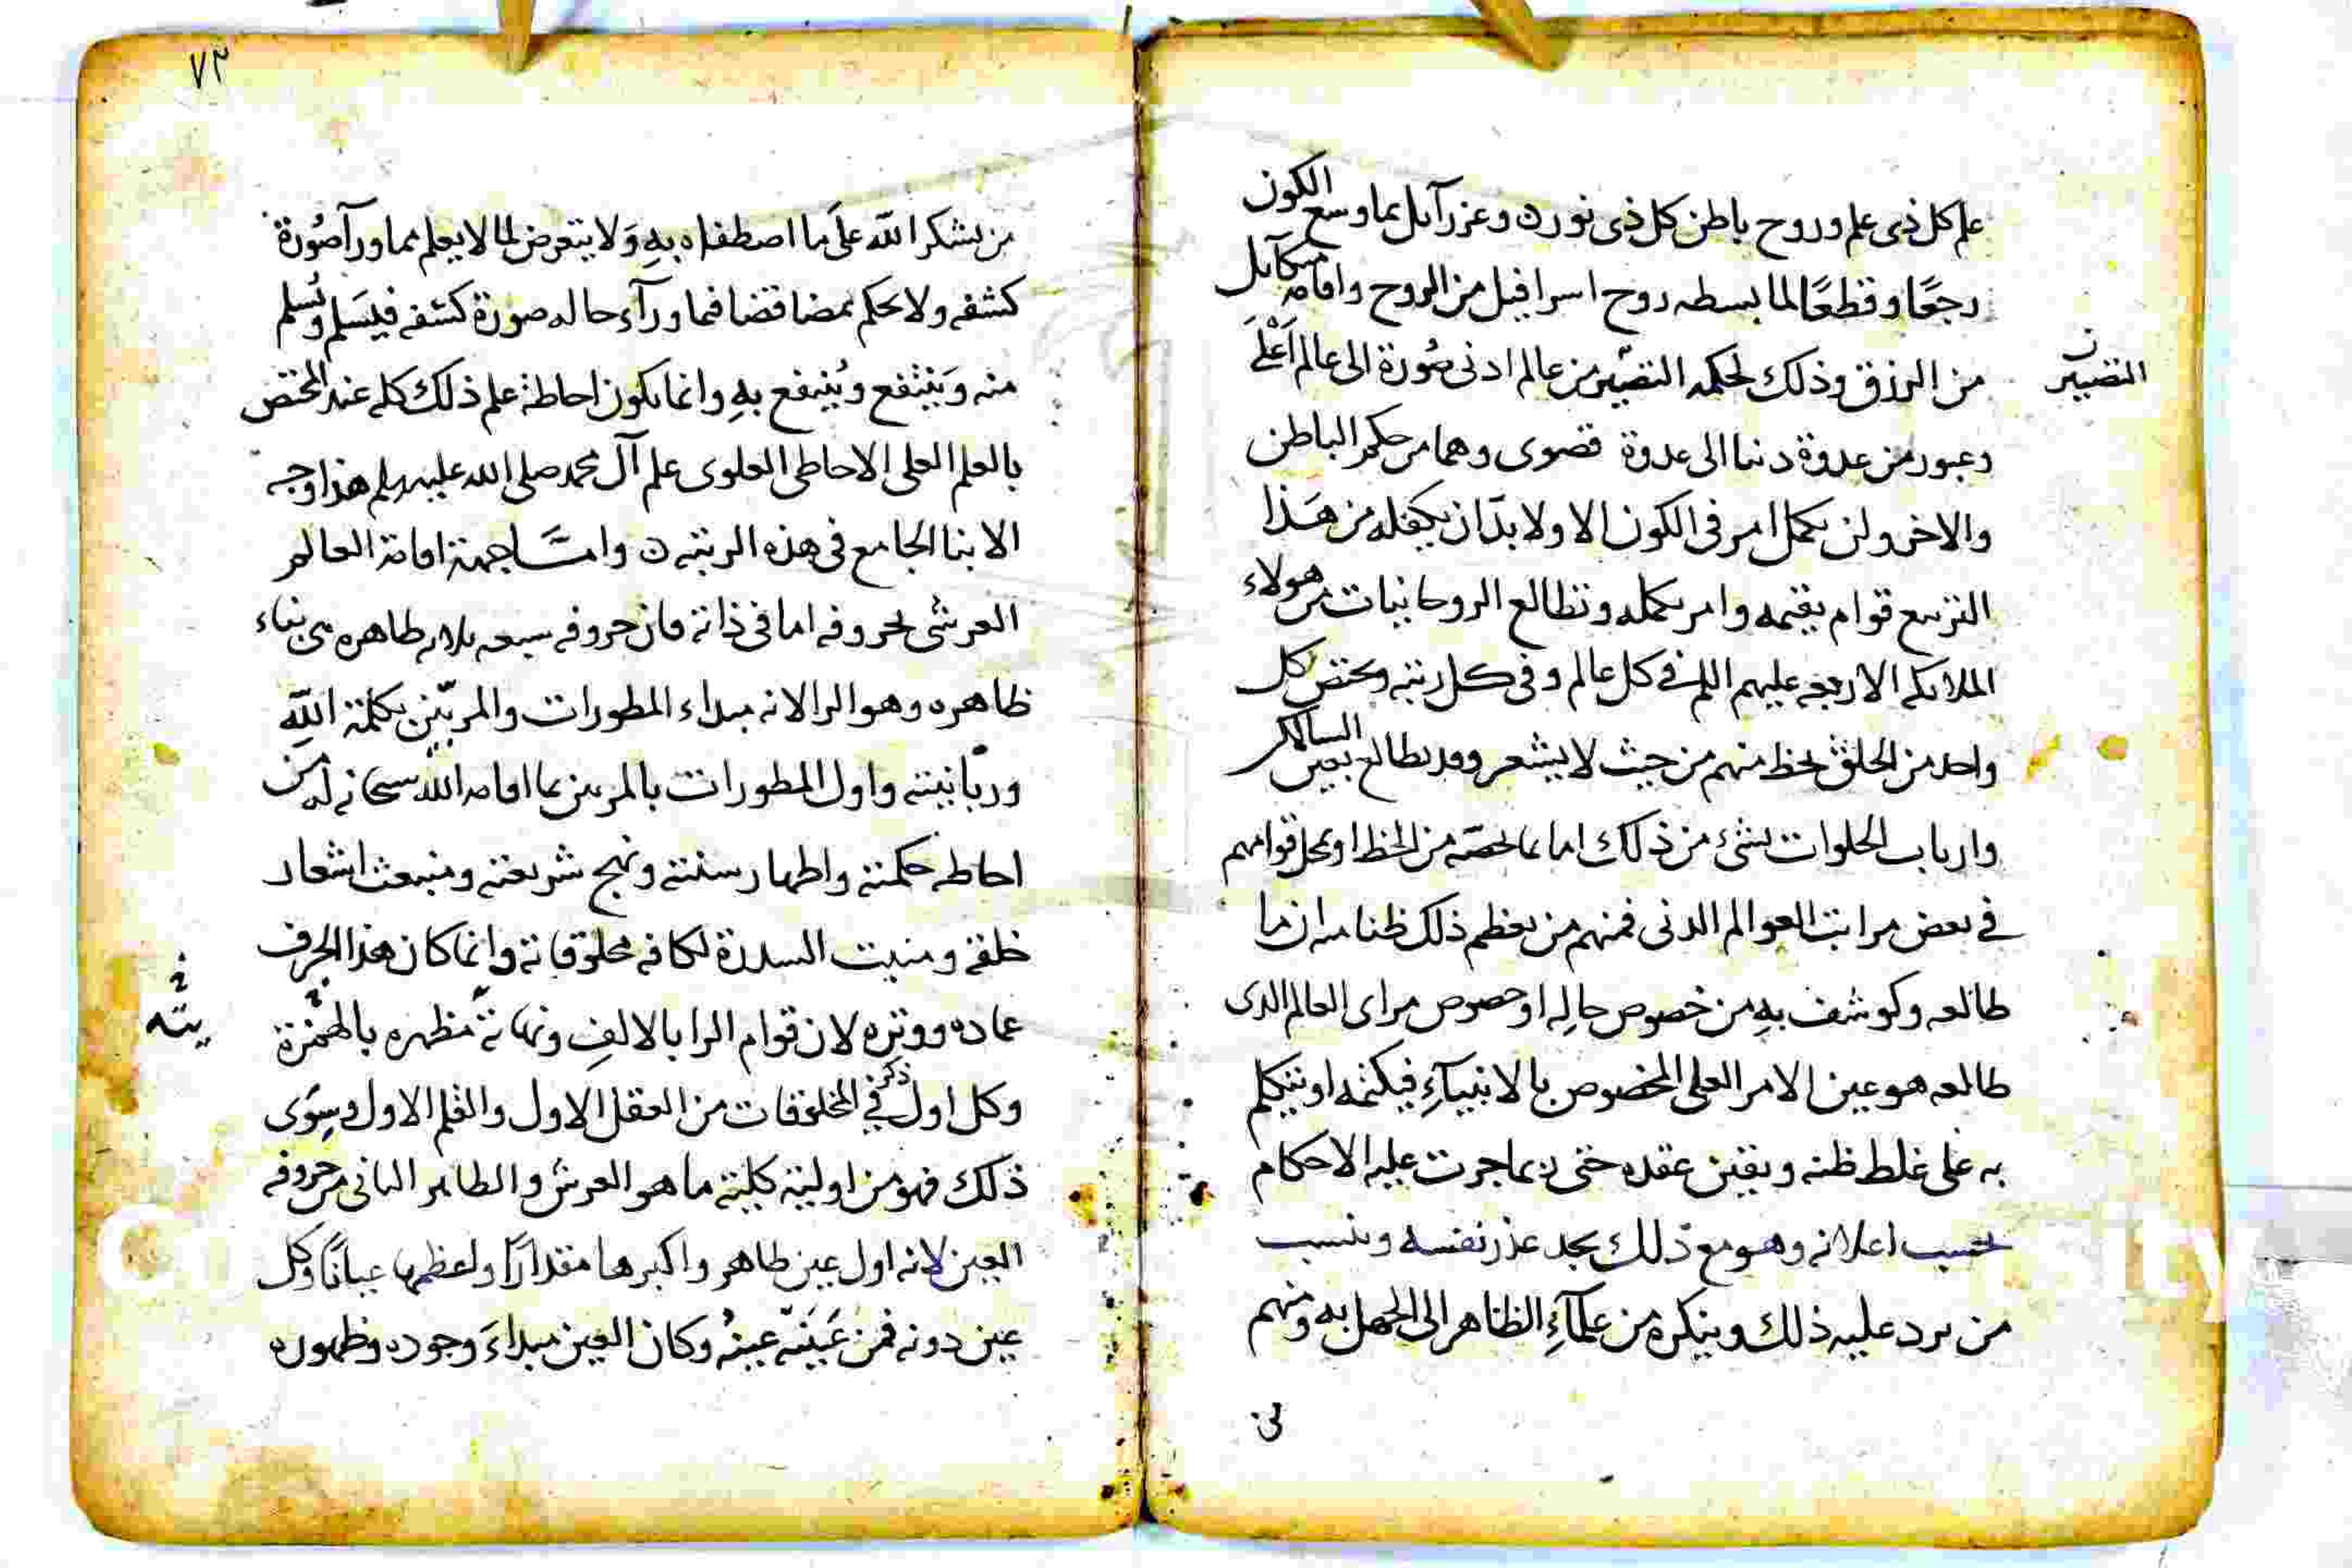 علم كل ذى علم وروح باطن كل ذى نور ن وعزرآيل بما وسع الكون
رجعًا وقطعًا لما بسطه روح اسرافيل من الروح واقامه ميكآيل
من الرزق وذلك لحكمه التصيير من عالم ادنى صُورة الى عالم اَعْلَى
التصيير
وعبور من عدوة دنيا الى عدوة قصوى وهما من حكم الباطن
والاخر ولن يكمل امر فى الكون الا ولا بدّ ان يكفله من هَذا
التربيع قوام يقيمه وامر يكمله وتطالع الروحانيات من هولاء
الملايكه الاربعه عليهم السلم فى كل عالم وفى كل رتبه ويختص كل
واحد من الخلق بحظ منهم من حيث لا يشعر وقد يطالع بعض السالكين
وارباب الخلوات بشئ من ذلك اما بما يخصّه من الحظ او بمحل قوامهم
فى بعض مراتب العوالم الدنى فمنهم من يعظم ذلك ظنا منه ان ما
طالعه وكوشف بهِ من خصوص حالِه او خصوص مراى العالم الذى
طالعه هو عين الامر العلى المخصوص بالانبيآءِ فيكتمه او يتكلم
به على غلط ظنه ويقين عقده حتى ربما جرت عليه الاحكام
بحسب اعلانه وهو مع ذلك يجد عذر نفسه وينسب
من يرد عليه ذلك وينكره من علمآءِ الظاهر الى الجهل به ومنهم
من
٧٢
من يشكر الله علَى ما اصطفاه بهِ وَلا يتعرض لما لا يعلم مما ورآ صُورة
كشفه ولا يحكم بمضا قضا فيما ورآء حاله صورة كشفه فيسَلم ويُسلم
منه وَيَنتفع ويُنتفع بهِ وانما يكون احاطة علم ذلك كله عند المختص
بالعلم العلى الاحاطى العلوى علم آل محمد صلى الله عليه وسلم هذا وجه
الانبا الجامع فى هذه الرتبه ن وامّا جهة اقامة العالم
العرشى لحروفه اما فى ذاته فان حروفه سبعه ثلاثه ظاهره فى بناء
ظاهره وهو الرا لانه مبداء المطورات والمربّين بكلمة اللهِ
وربّانيته واول المطورات بالمربين بما اقامه الله سبحانه له من
احاطه حكمته واظهار سنته ونهج شريعته ومنبعث اشعار
خلقه ومنبت السدرة لكافه مخلوقاته وانما كان هذا الحرف
عماده ووتره لان قوام الرا بالالفِ ونهاية مظهره بالهمزة
يته
وكل اول ذكر فى المخلوقات من العقل الاول والقلم الاول وسِوَى
ذلك فهو من اولية كلية ما هو العرش والظاهر الثانى من حروفه
العين لانه اول عين ظاهر واكبرها مقدارًا واعظمها عيانًا وكل
عين دونه فمن عَينيّته عينهُ وكان العين مبداءَ وجوده وظهوره